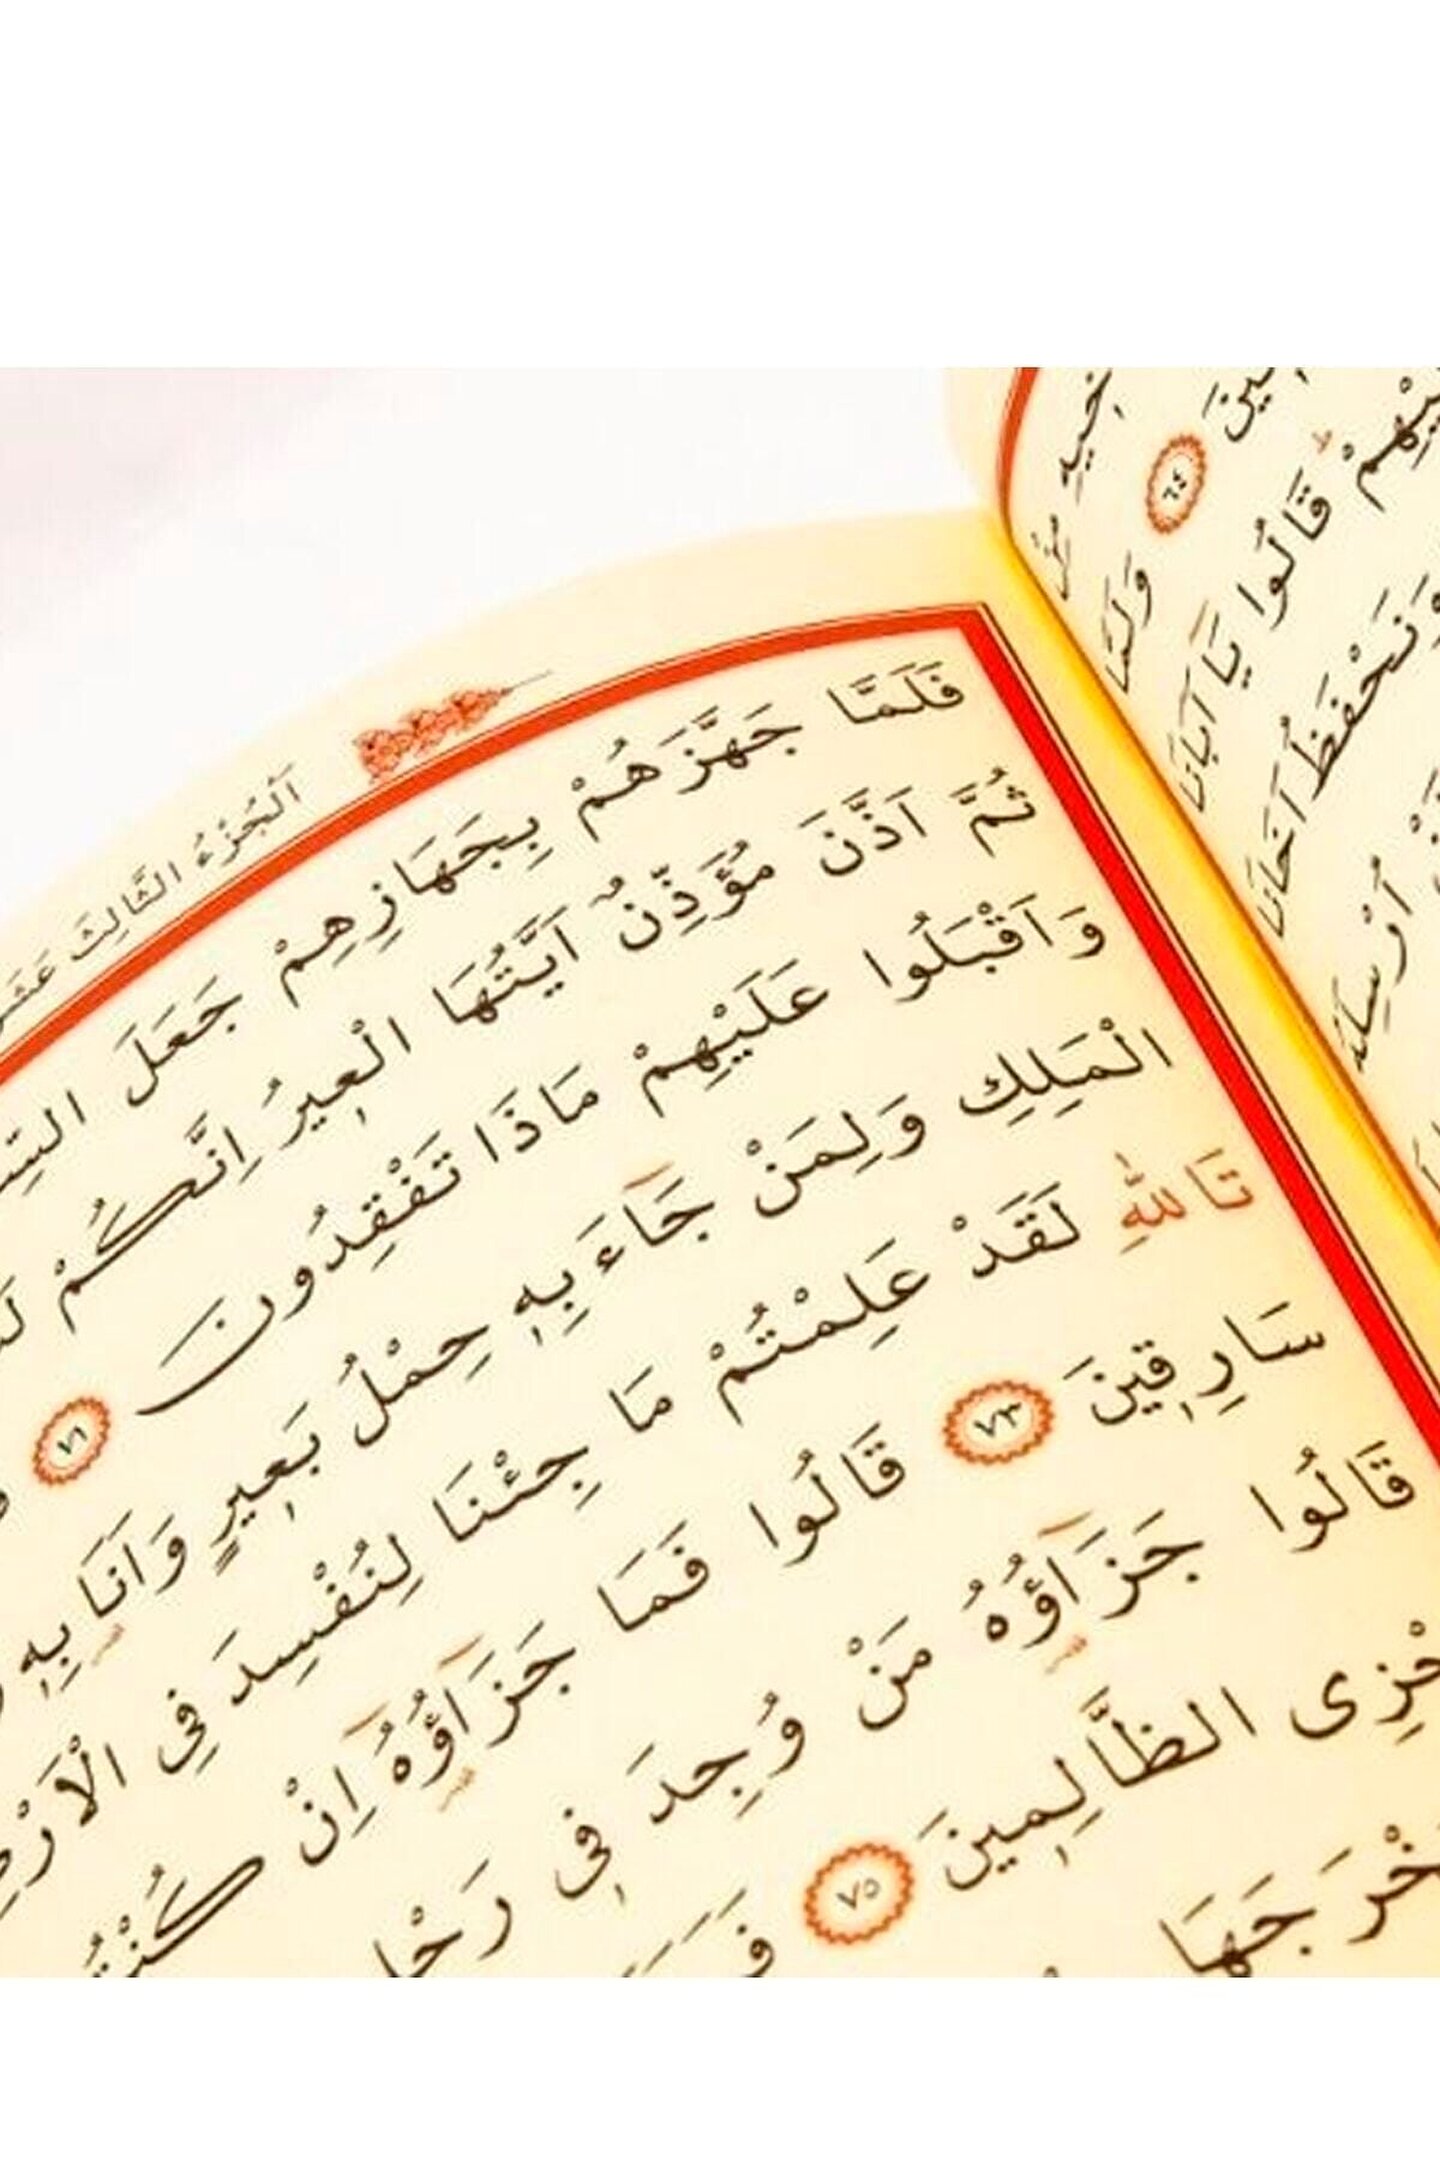 اَلْجُزْءُ الثَّالِثَ عَشَرَ
فَلَمَّا جَهَّزَهُمْ بِجَهَازِهِمْ جَعَلَ
ثُمَّ اَذَّنَ مُؤَذِّنٌ اَيَّتُهَا الْعِيرُ اِنَّكُمْ
وَاَقْبَلُوا عَلَيْهِمْ مَاذَا تَفْقِدُونَ ٧١
الْمَلِكِ وَلِمَنْ جَاءَ بِهِ حِمْلُ بَعِيرٍ وَاَنَا بِهِ
تَاللّٰهِ لَقَدْ عَلِمْتُمْ مَا جِئْنَا لِنُفْسِدَ فِي الْاَرْضِ
سَارِقِينَ ٧٣ قَالُوا فَمَا جَزَاؤُهُ اِنْ كُنْتُمْ
قَالُوا جَزَاؤُهُ مَنْ وُجِدَ فِي
الظَّالِمِينَ ٧٥
اَخِيهِ
٦٤ وَلَمَّا
قَالُوا يَا اَبَانَا
وَنَحْفَظُ اَخَانَا
اُرْسِلَهُ